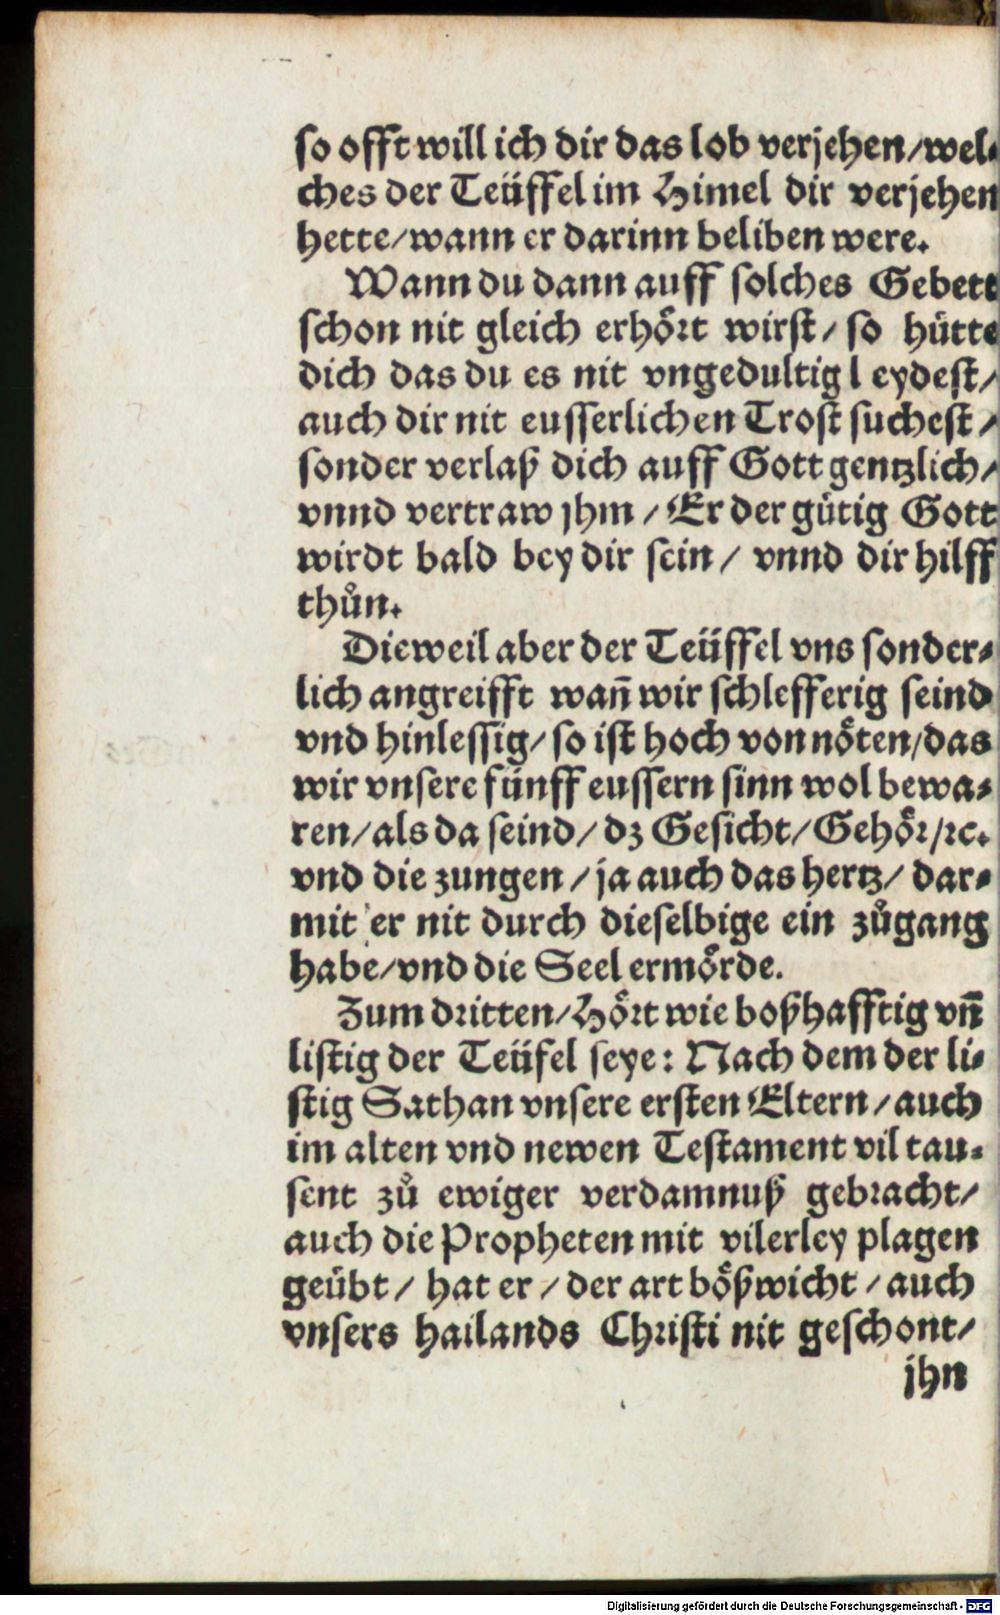 so offt will ich dir das lob verjehen/wel-
ches der Teüffel im Himel dir verjehen
hette/wann er darinn beliben were.
Wann du dann auff solches Gebett
schon nit gleich erhoͤrt wirst/ so hütte
dich das du es nit vngedultig l eydest/
auch dir nit eusserlichen Trost suchest/
sonder verlaß dich auff Gott gentzlich/
vnnd vertraw jhm/ Er der guͤtig Gott
wirdt bald bey dir sein/ vnnd dir hilff
thuͦn.
Dieweil aber der Teüffel vns sonder-
lich angreifft wañ wir schlefferig seind
vnd hinlessig/ so ist hoch von noͤten/das
wir vnsere fünff eussern sinn wol bewa-
ren/als da seind/ dz Gesicht/Gehoͤr/ꝛc.
vnd die zungen/ ja auch das hertz/ dar-
mit er nit durch dieselbige ein zuͦgang
habe/vnd die Seel ermoͤrde.
Zum dritten/Hoͤrt wie boßhafftig vñ
listig der Teüfel seye: Nach dem der li-
stig Sathan vnsere ersten Eltern/auch
im alten vnd newen Testament vil tau-
sent zuͦ ewiger verdamnuß gebracht/
auch die Propheten mit vilerley plagen
geuͤbt/ hat er/ der art boͤßwicht/ auch
vnsers hailands Christi nit geschont/
jhn
Digitalisierung gefördert durch die Deutsche Forschungsgemeinschaft - DFG